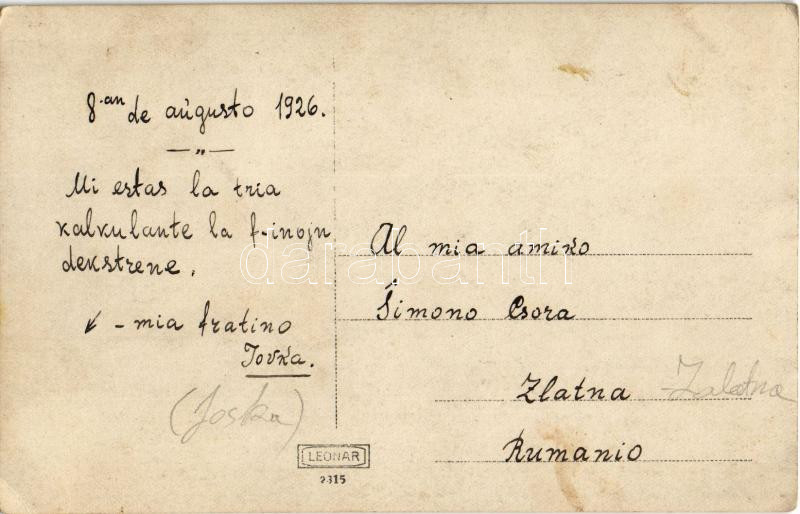 8-an de aŭgusto 1926.
— „ —
Mi estas la tria
kalkulante la f-inojn
dekstrene.
↙ - mia fratino
Jovka.
(Joska)
Al mia amiko
Ŝimono Csora
Zlatna Zalatna
Rumanio
LEONAR
2315
darabanth